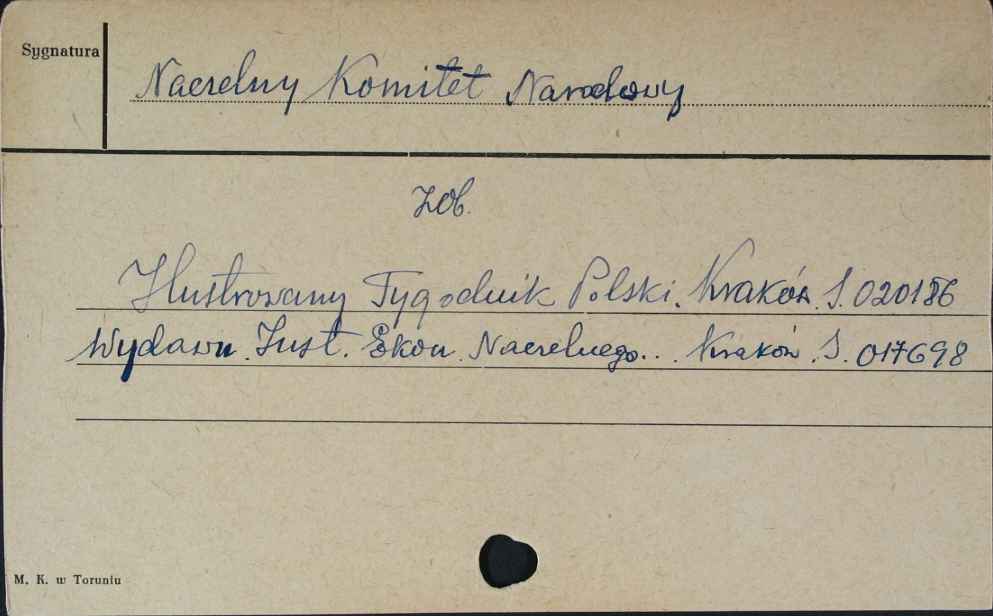 Sygnatura
Naczelny Komitet Narodowy
zob.
Ilustrowany Tygodnik Polski. Kraków. S. 020186
Wydawn. Inst. Ekon. Naczelnego... Kraków. S. 017698
M. K. w Toruniu